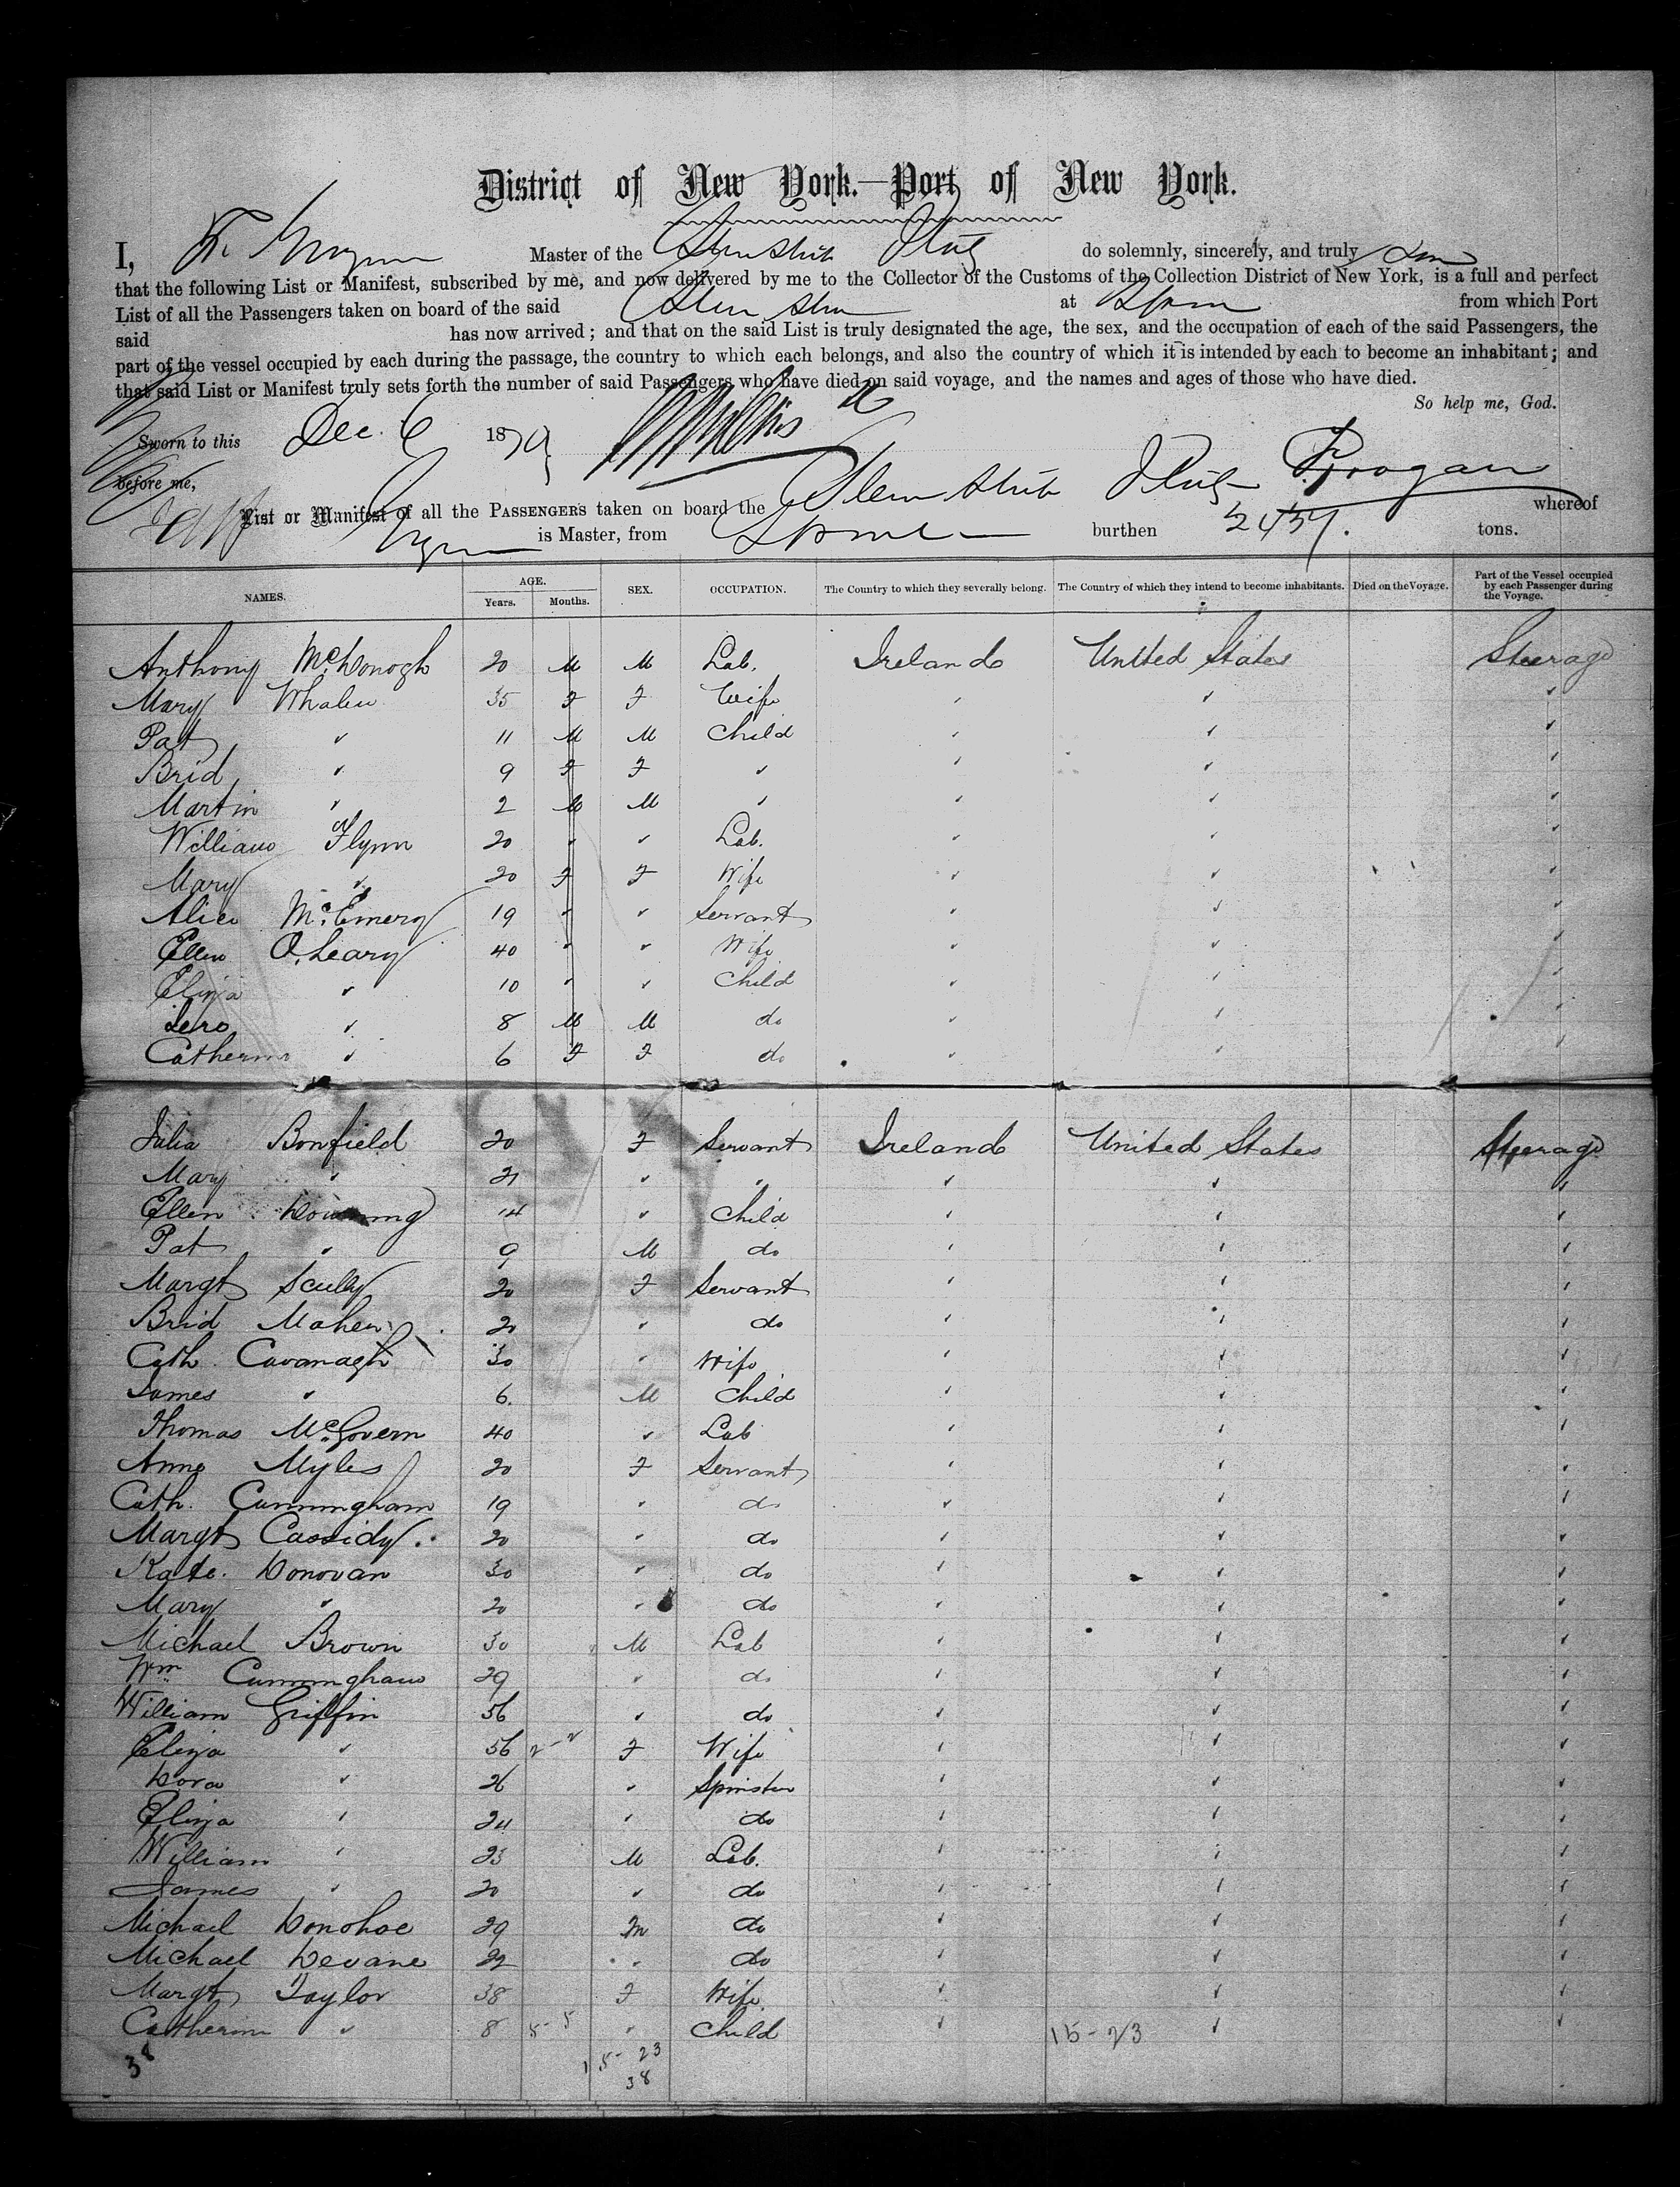 District of New York.—Port of New York.
I, Master of the do solemnly, sincerely, and truly
that the following List or Manifest, subscribed by me, and now delivered by me to the Collector of the Customs of the Collection District of New York, is a full and perfect
List of all the Passengers taken on board of the said at from which Port
said has now arrived; and that on the said List is truly designated the age, the sex, and the occupation of each of the said Passengers, the
part of the vessel occupied by each during the passage, the country to which each belongs, and also the country of which it is intended by each to become an inhabitant; and
that said List or Manifest truly sets forth the number of said Passengers who have died on said voyage, and the names and ages of those who have died.
So help me, God.
Sworn to this Dec. 6 1879
before me,
List or Manifest of all the PASSENGERS taken on board the whereof
is Master, from burthen 2457. tons.
NAMES. AGE. Years. Months. SEX. OCCUPATION. The Country to which they severally belong. The Country of which they intend to become inhabitants. Died on the Voyage. Part of the Vessel occupied by each Passenger during the Voyage.
Anthony McDonogh 20 M M Lab. Ireland United States Steerage
Mary Whalen 35 F F Wife
Pat " 11 M M Child
Brid " 9 F F "
Martin " 2 M M "
William Flynn 20 " " Lab.
Mary " 20 F F Wife
Alice McEmery 19 " " Servant
Ellen O'Leary 40 " " Wife
Eliza " 10 " " Child
" 8 M M do
Catherine " 6 F F do
Julia Bonfield 20 F Servant Ireland United States Steerage
Mary " 21 " "
Ellen Downing 14 " Child
Pat " 9 M do
Margt Scully 20 F Servant
Brid Maher 20 " do
Cath. Cavanagh 30 " Wife
James " 6. M Child
Thomas McGovern 40 " Lab
Anne Myles 20 F Servant
Cath. Cunningham 19 " do
Margt Cassidy 20 " do
Kate. Donovan 30 " do
Mary " 20 " do
Michael Brown 30 M Lab
Wm Cunningham 29 " do
William Griffin 56 " do
Eliza " 56 2-2 F Wife
Dora " 26 " Spinster
Eliza " 24 " do
William " 23 M Lab.
James " 20 " do
Michael Donohoe 29 m do
Michael Devane 22 " do
Margt Taylor 38 F Wife
Catherine " 8 5-5 " Child 15-23
38 15-23
38